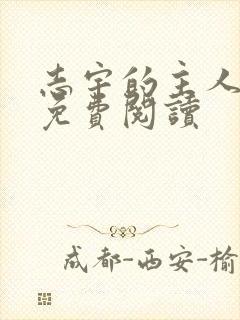 志宇的主人
免費閱讀
成都-西安-榆